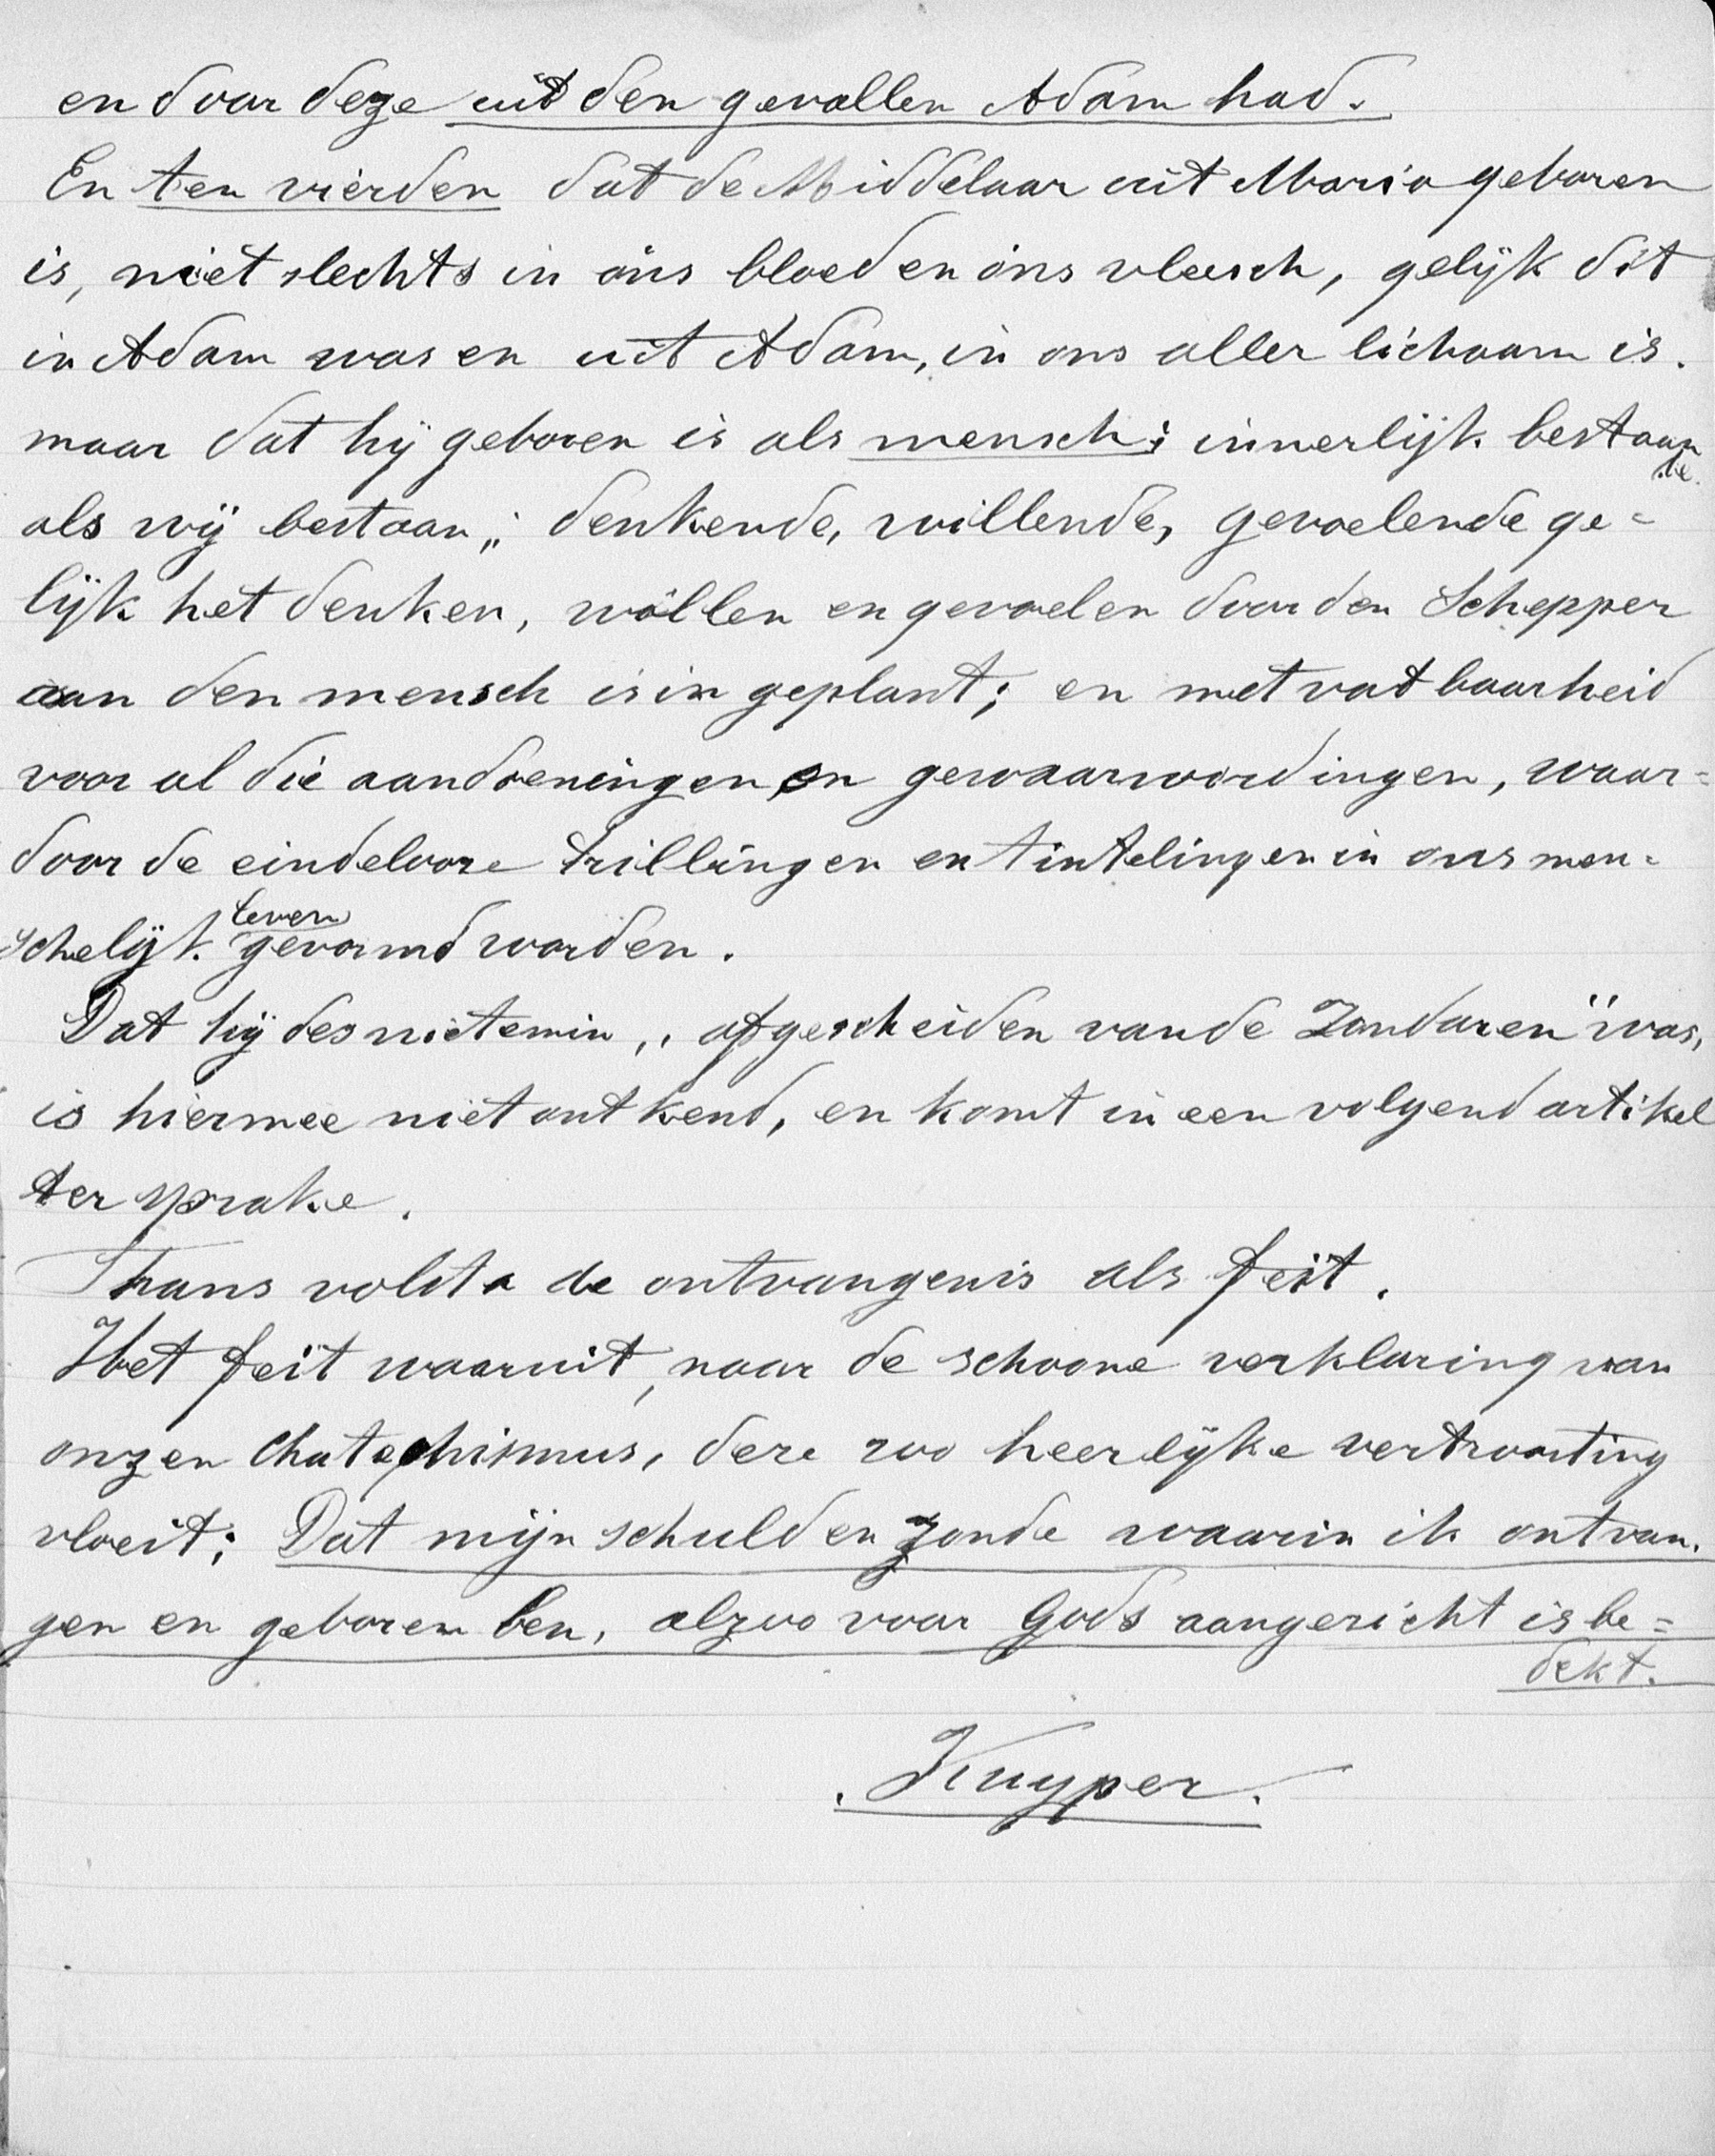 en door deze uit den gevallen Adam had.
En ten vierden dat de Middelaar uit Maria geboren
is, niet slechts in ons bloed en ons vleesch, gelijk dit
in Adam was en uit Adam, in ons aller lichaam is.
maar dat hij geboren is als mensch; innerlijk bestaan
de.
als wij bestaan; denkende, willende, gevoelende ge-
lijk het denken, willen en gevoelen door den Schepper
aan den mensch is in geplant; en met vatbaarheid
voor al die aandoeningen en gewaarwordingen, waar-
door de eindeloore trillingen en tintelingen in ons men-
schelijk leven gevormd worden.
Dat hij des niet emin ,, afgescheiden van de Zondaren" was,
is hiermee niet ontkend, en komt in een volgend artikel
ter sprake.
Thans volsta de ontvangenis als feit.
Het feit waaruit, naar de schoone verklaring van
onzen Chatechismus, deze zoo heerlijke vertroosting
vloeit; Dat mijn schuld en zonde waarin ik ontvan.
gen en geboren ben, alzoo voor Gods aangezicht is be=
dekt.
Kuyper.